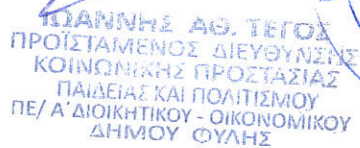 ΙΩΑΝΝΗΣ ΑΘ. ΤΕΓΟΣ
ΠΡΟΪΣΤΑΜΕΝΟΣ ΔΙΕΥΘΥΝΣΗΣ
ΚΟΙΝΩΝΙΚΗΣ ΠΡΟΣΤΑΣΙΑΣ
ΠΑΙΔΕΙΑΣ ΚΑΙ ΠΟΛΙΤΙΣΜΟΥ
ΠΕ/ Α΄ΔΙΟΙΚΗΤΙΚΟΥ - ΟΙΚΟΝΟΜΙΚΟΥ
ΔΗΜΟΥ ΦΥΛΗΣ